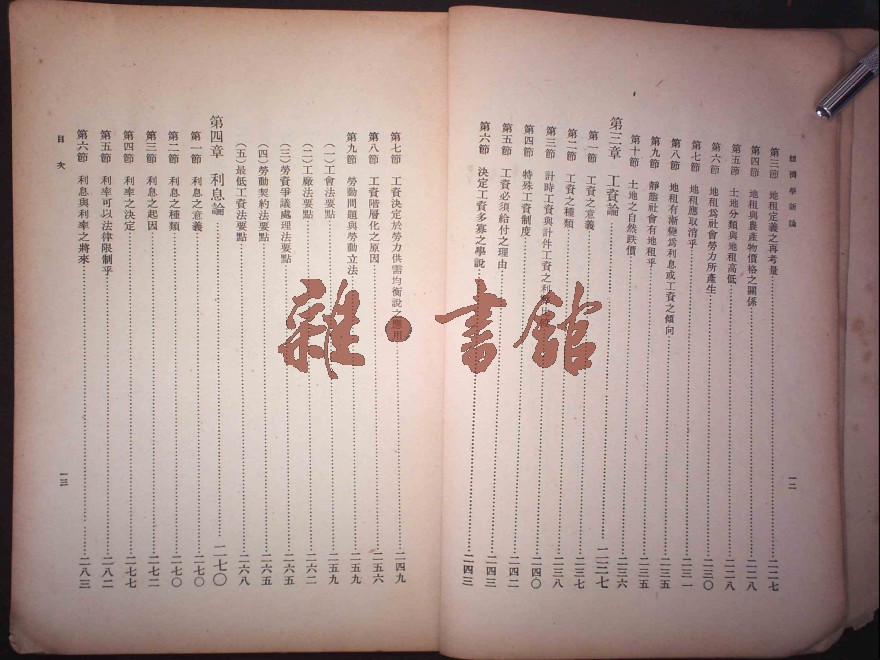 經濟學新論
第三節 地租定義之再考量 二二七
第四節 地租與農產物價格之關係 二二八
第五節 土地分類與地租高低 二二八
第六節 地租爲社會勞力所產生 二三〇
第七節 地租應取消乎 二三一
第八節 地租有漸變爲利息或工資之傾向 二三五
第九節 靜態社會有地租乎 二三五
第十節 土地之自然跌價 二三六
第三章 工資論 二三七
第一節 工資之意義 二三七
第二節 工資之種類 二三八
第三節 計時工資與計件工資之利 二三八
第四節 特殊工資制度 二四〇
第五節 工資必須給付之理由 二四二
第六節 決定工資多寡之學說 二四三
一二
第七節 工資決定於勞力供需均衡說之應用 二四九
第八節 工資階層化之原因 二五六
第九節 勞動問題與勞動立法 二五九
(一)工會法要點 二五九
(二)工廠法要點 二六二
(三)勞資爭議處理法要點 二六五
(四)勞動契約法要點 二六五
(五)最低工資法要點 二六八
第四章 利息論 二七〇
第一節 利息之意義 二七〇
第二節 利息之種類 二七〇
第三節 利息之起因 二七二
第四節 利率之決定 二七七
第五節 利率可以法律限制乎 二八二
第六節 利息與利率之將來 二八三
目次
一三
雜·書館